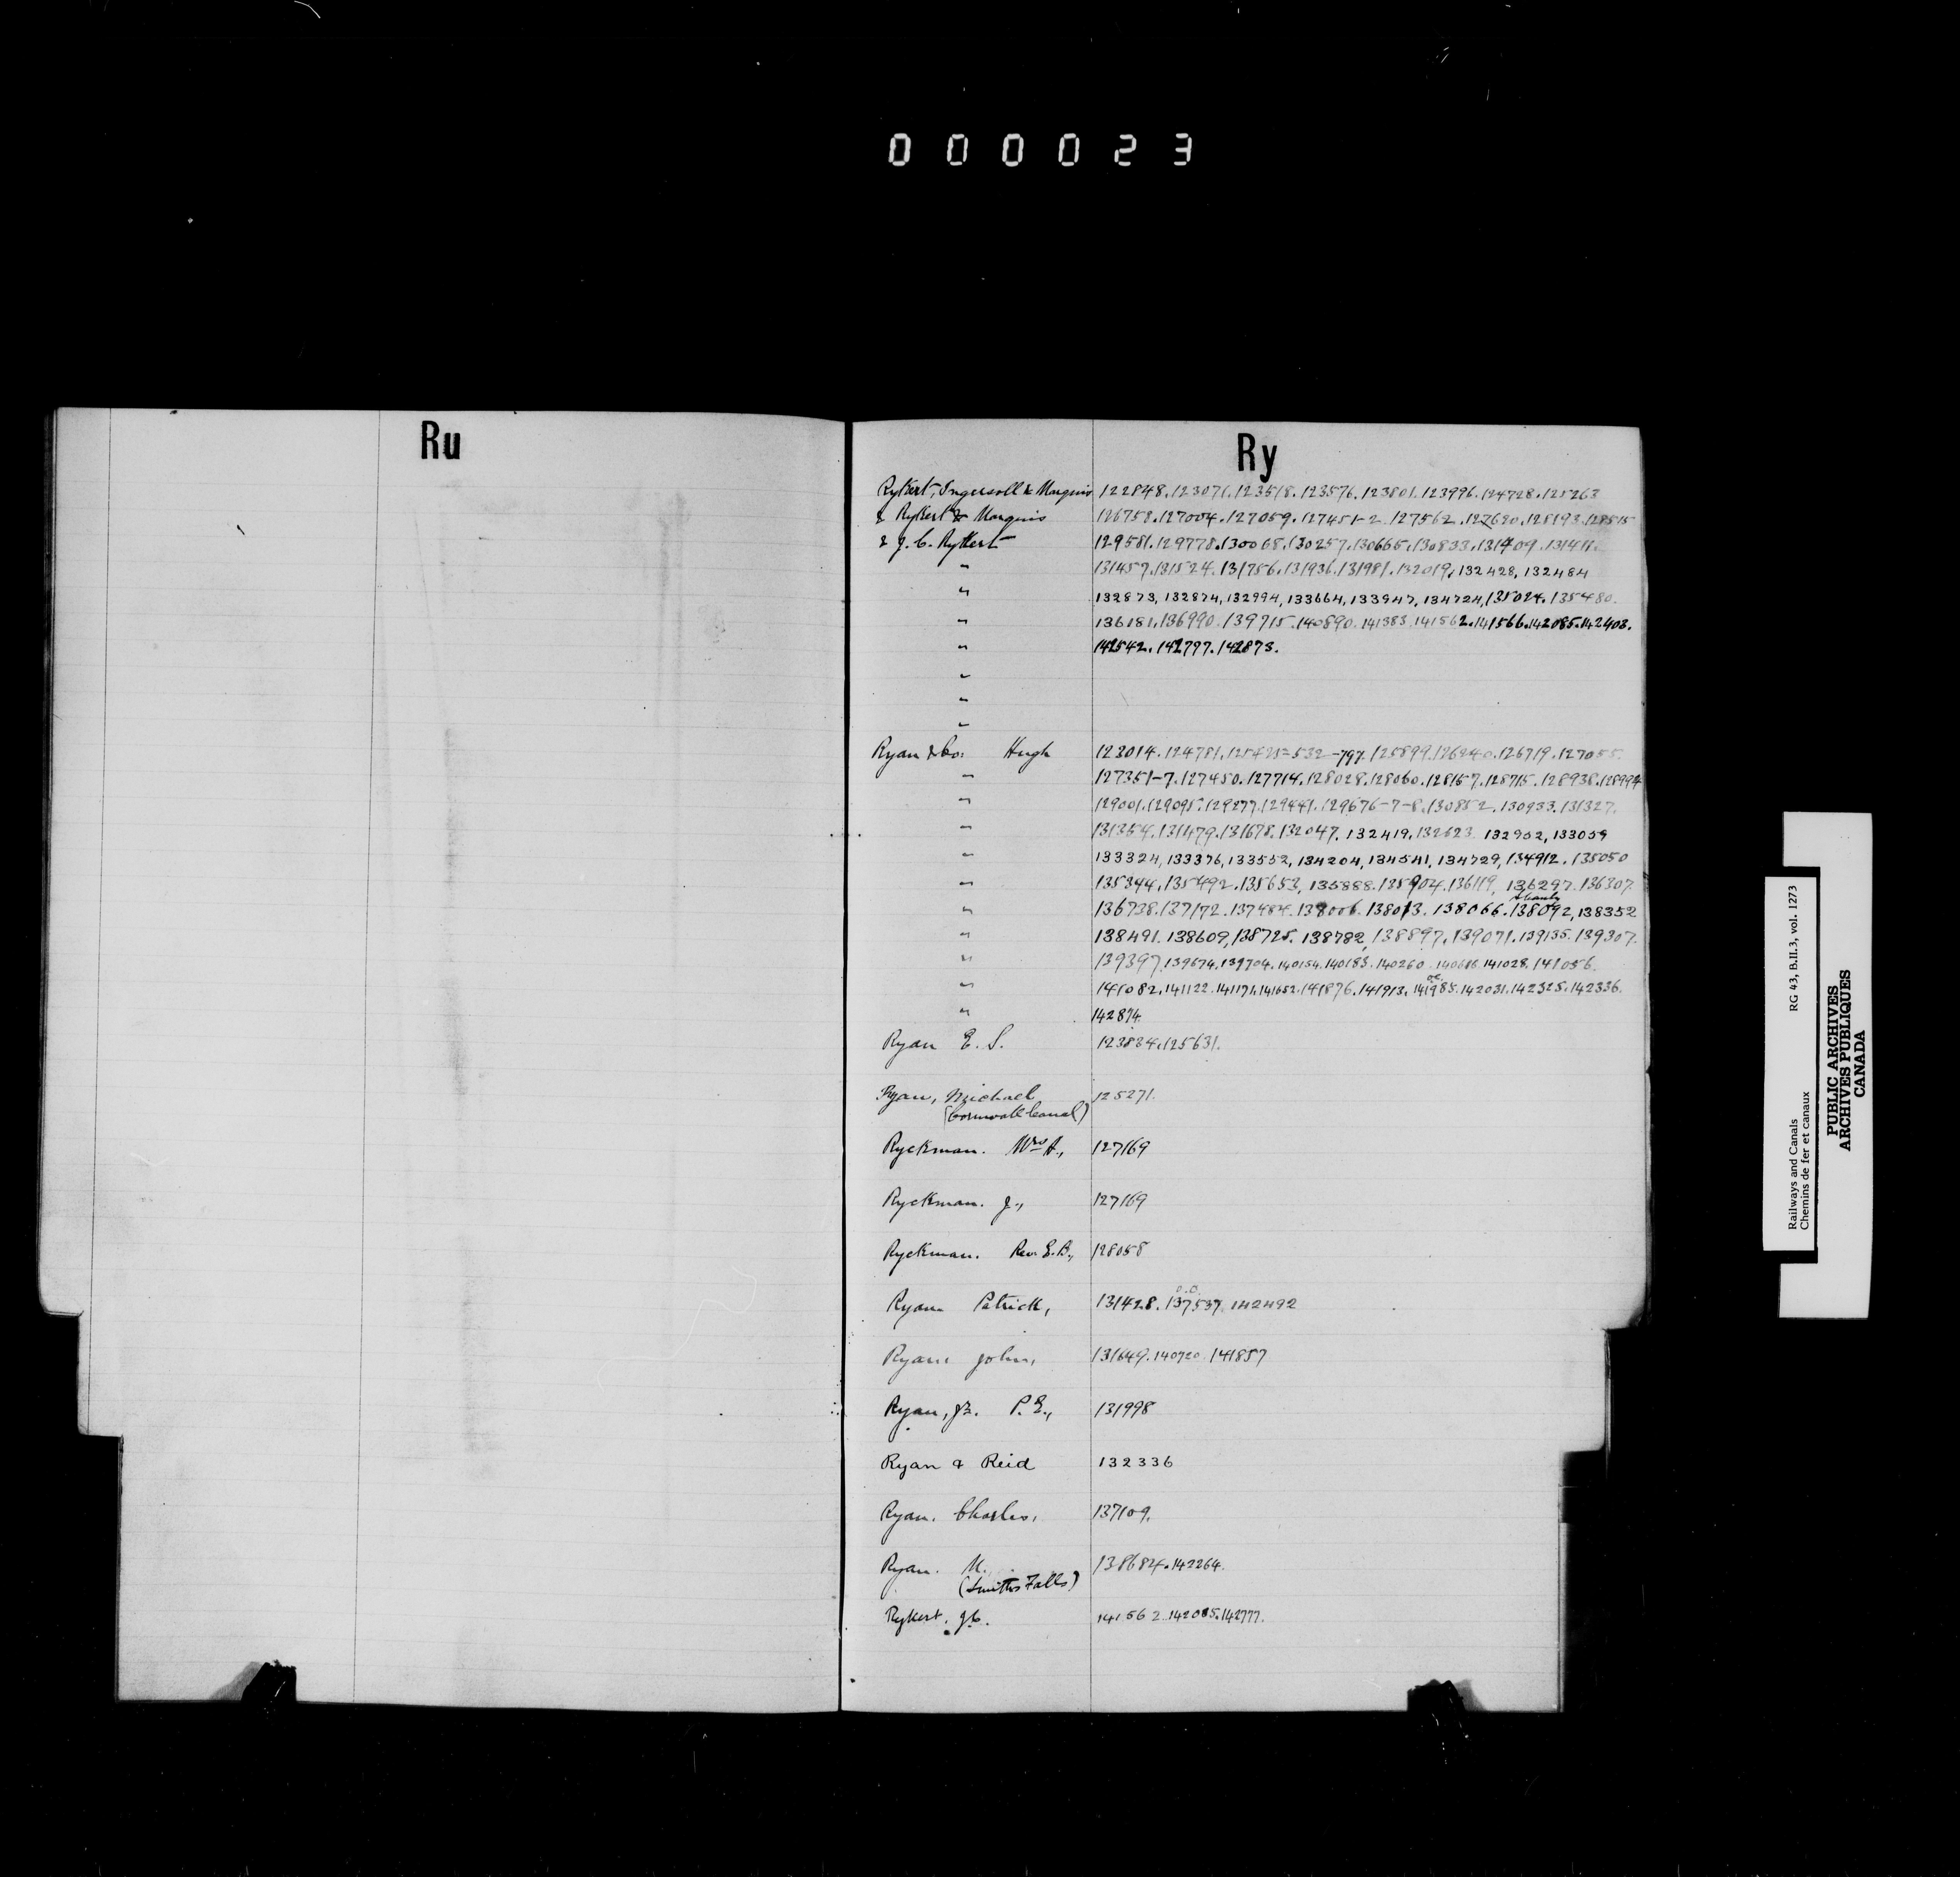 000023
Ru
Ry
Rykert, Ingersoll & Marquis 122848. 123071. 123518. 123576. 123801. 123996. 124728. 125263
& Rykert & Marquis 126758. 127004. 127059. 127451-2. 127562. 127620. 128193. 128515
& J. C. Rykert 129581. 129778. 130068. 130257. 130665. 130833. 131409. 131411.
" 131457. 131524. 131756. 131936. 131981. 132019, 132428, 132484
" 132873, 132874, 132994, 133664, 133947, 134724, 135024. 135480.
" 136181. 136990. 139715. 140890. 141383. 141562. 141566. 142085. 142403.
" 142542. 142797. 142873.
"
"
"
Ryan & Co. Hugh 123014. 124781, 532-797. 125899. 126240. 126719. 127055.
" 127351-7. 127450. 127714. 128028. 128060. 128157. 128715. 128938. 128994
" 129001. 129095. 129277. 129441. 129676-7-8. 130852. 130933. 131327.
" 131354. 131479. 131678. 132047. 132419, 132623 132902, 133059
" 133324, 133376, 133552, 134204, 134541, 134729, 134912. 135050
" 135344. 135492. 135653, 135888. 135904. 136119, 136297. 136307.
" 136738. 137172. 137484. 138006. 138013. 138066. 138092, 138352
" 138491. 138609, 138725. 138782, 138897, 139071. 139135. 139307.
" 139397. 139674. 139704. 140154. 140183. 140260. 140686. 141028. 141056.
" 141082. 141122. 141171. 141652. 141876. 141913. 141985. 142031. 142325. 142336.
" 142874
Ryan E. S. 123834. 125631.
Ryan, Michael 125271.
(Cornwall Canal)
Ryckman. Mrs A., 127169
Ryckman. J., 127169
Ryckman. Rev. E. B., 128058
O.C.
Ryan Patrick, 131428. 137537. 142492
Ryan John, 131649. 140720. 141857
Ryan, Jr. P. E., 131998
Ryan & Reid 132336
Ryan. Charles, 137109.
Ryan. M. 138684. 142264.
(Smiths Falls)
Rykert. J.C. 141562. 142085. 142777.
Railways and Canals RG 43, B.II.3, vol. 1273
Chemins de fer et canaux
PUBLIC ARCHIVES
ARCHIVES PUBLIQUES
CANADA